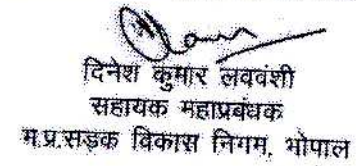 दिनेश कुमार लववंशी
सहायक महाप्रबंधक
म.प्र.सड़क विकास निगम, भोपाल